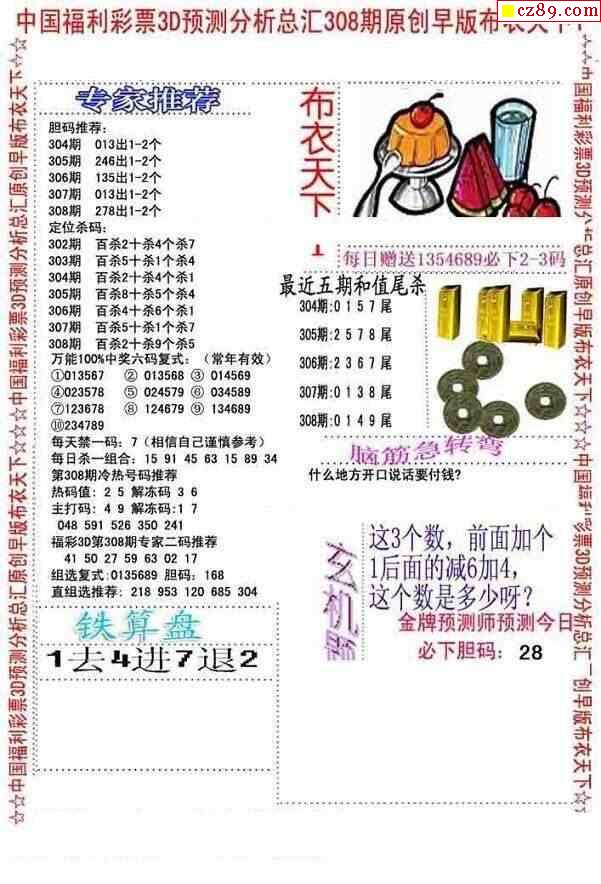 cz89.com
中国福利彩票3D预测分析总汇308期原创早版布衣天下
☆☆中国福利彩票3D预测分析总汇原创早版布衣天下☆☆☆中国福利彩票3D预测分析总汇原创早版布衣天下☆
专家推荐
胆码推荐:
304期 013出1-2个
305期 246出1-2个
306期 135出1-2个
307期 013出1-2个
308期 278出1-2个
定位杀码:
302期 百杀2十杀4个杀7
303期 百杀5十杀1个杀4
304期 百杀2十杀4个杀1
305期 百杀8十杀5个杀4
306期 百杀4十杀6个杀1
307期 百杀5十杀1个杀7
308期 百杀2十杀9个杀5
万能100%中奖六码复式:(常年有效)
①013567 ②013568 ③014569
④023578 ⑤024579 ⑥034589
⑦123678 ⑧124679 ⑨134689
⑩234789
每天禁一码:7(相信自己谨慎参考)
每日杀一组合: 15 91 45 63 15 89 34
第308期冷热号码推荐
热码值: 2 5 解冻码 3 6
主打码: 4 9 解冻码:1 7
048 591 526 350 241
福彩3D第308期专家二码推荐
41 50 27 59 63 02 17
组选复式:0135689 胆码: 168
直组选推荐: 218 953 120 685 304
铁算盘
1去4进7退2
布衣天下
每日赠送1354689必下2-3码
最近五期和值尾杀
304期:0 1 5 7 尾
305期:2 5 7 8 尾
306期:2 3 6 7 尾
307期:0 1 3 8 尾
308期:0 1 4 9 尾
脑筋急转弯
什么地方开口说话要付钱?
玄机
这3个数,前面加个
1后面的减6加4,
这个数是多少呀?
金牌预测师预测今日
必下胆码: 28
中国福利彩票3D预测分析总汇原创早版布衣天下☆☆☆中国福利彩票3D预测分析总汇 创早版布衣天下☆☆